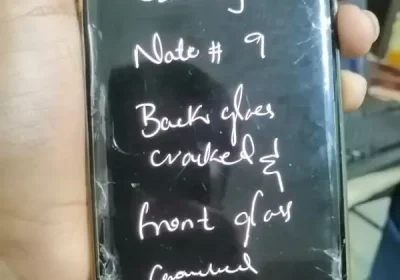 Note # 9
Back glass
cracked &
front glass
cracked